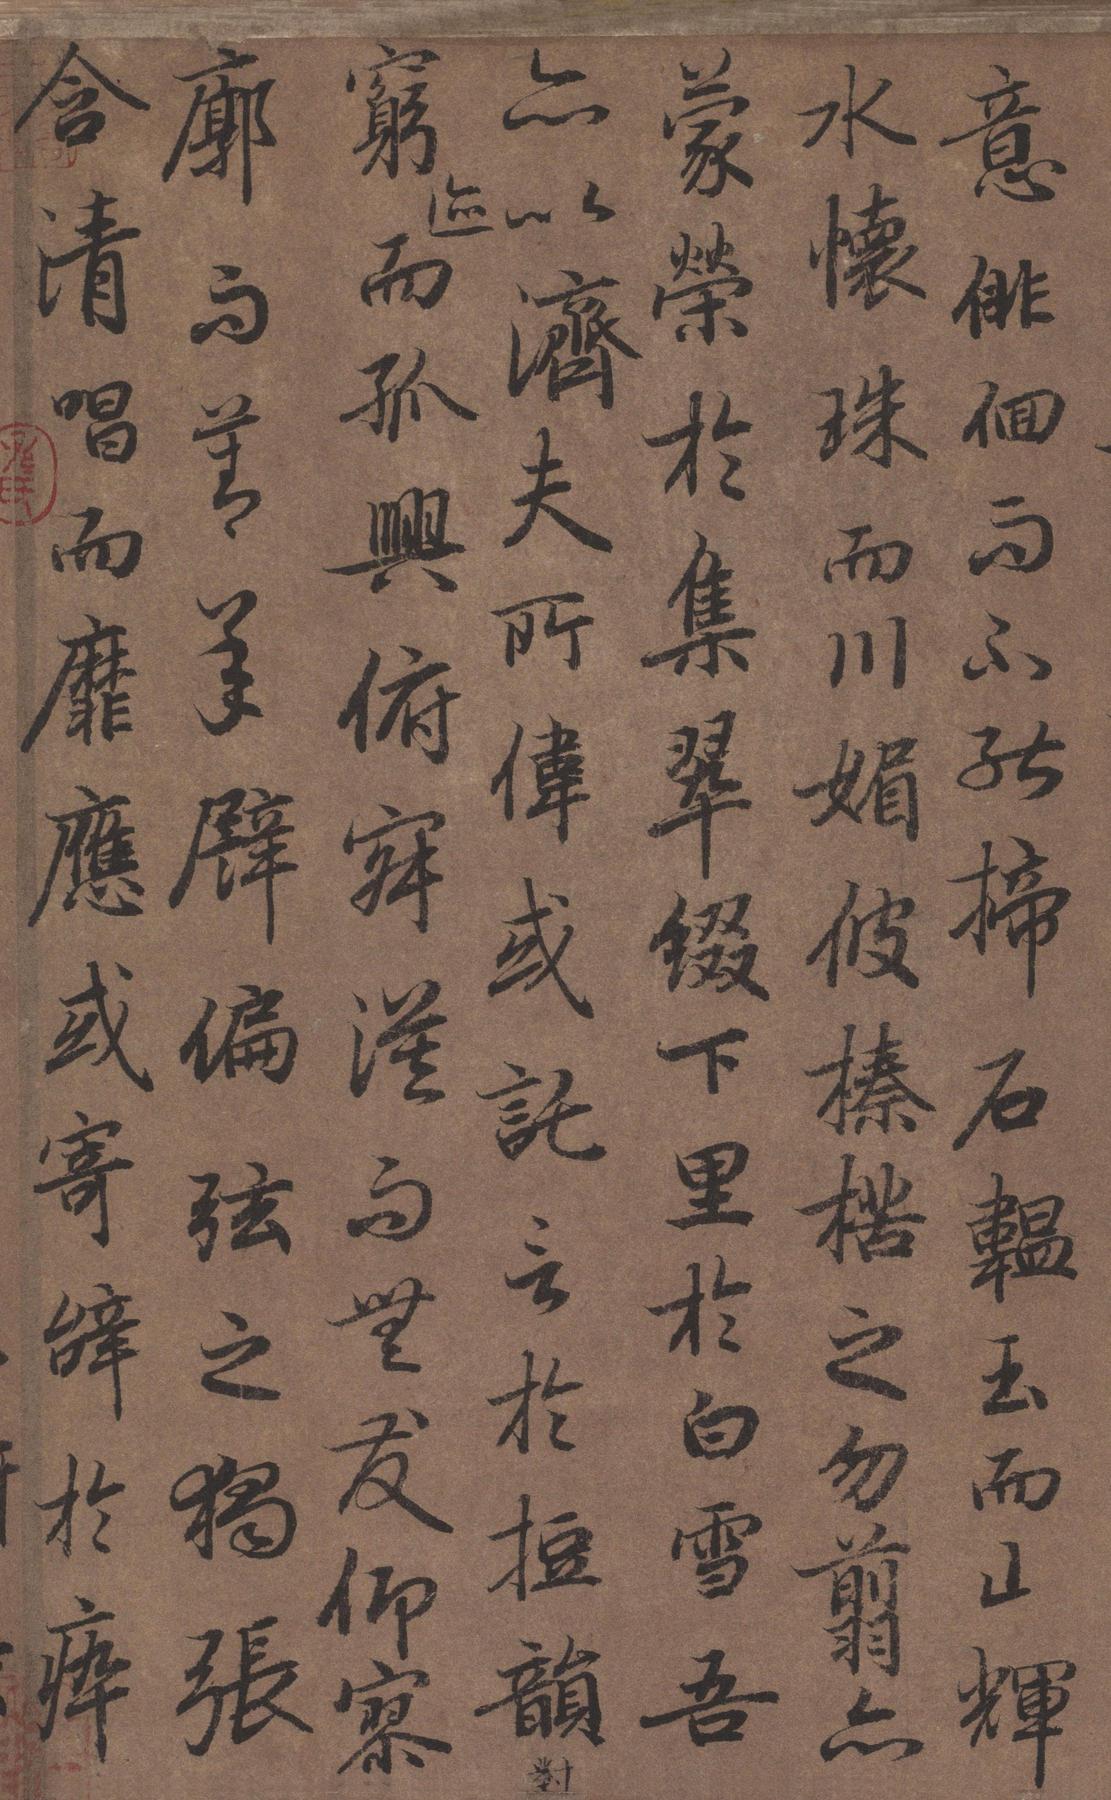 意俳佪而不能揥石韞玉而山輝
水懷珠而川媚彼榛楛之勿翦亦
蒙榮於集翠綴下里於白雪吾
亦以濟夫所偉或託言於短韻
對
窮迹而孤興俯寂漠而無友仰寥
廓而莫羊辟偏弦之獨張
含清唱而靡應或寄辭於瘁